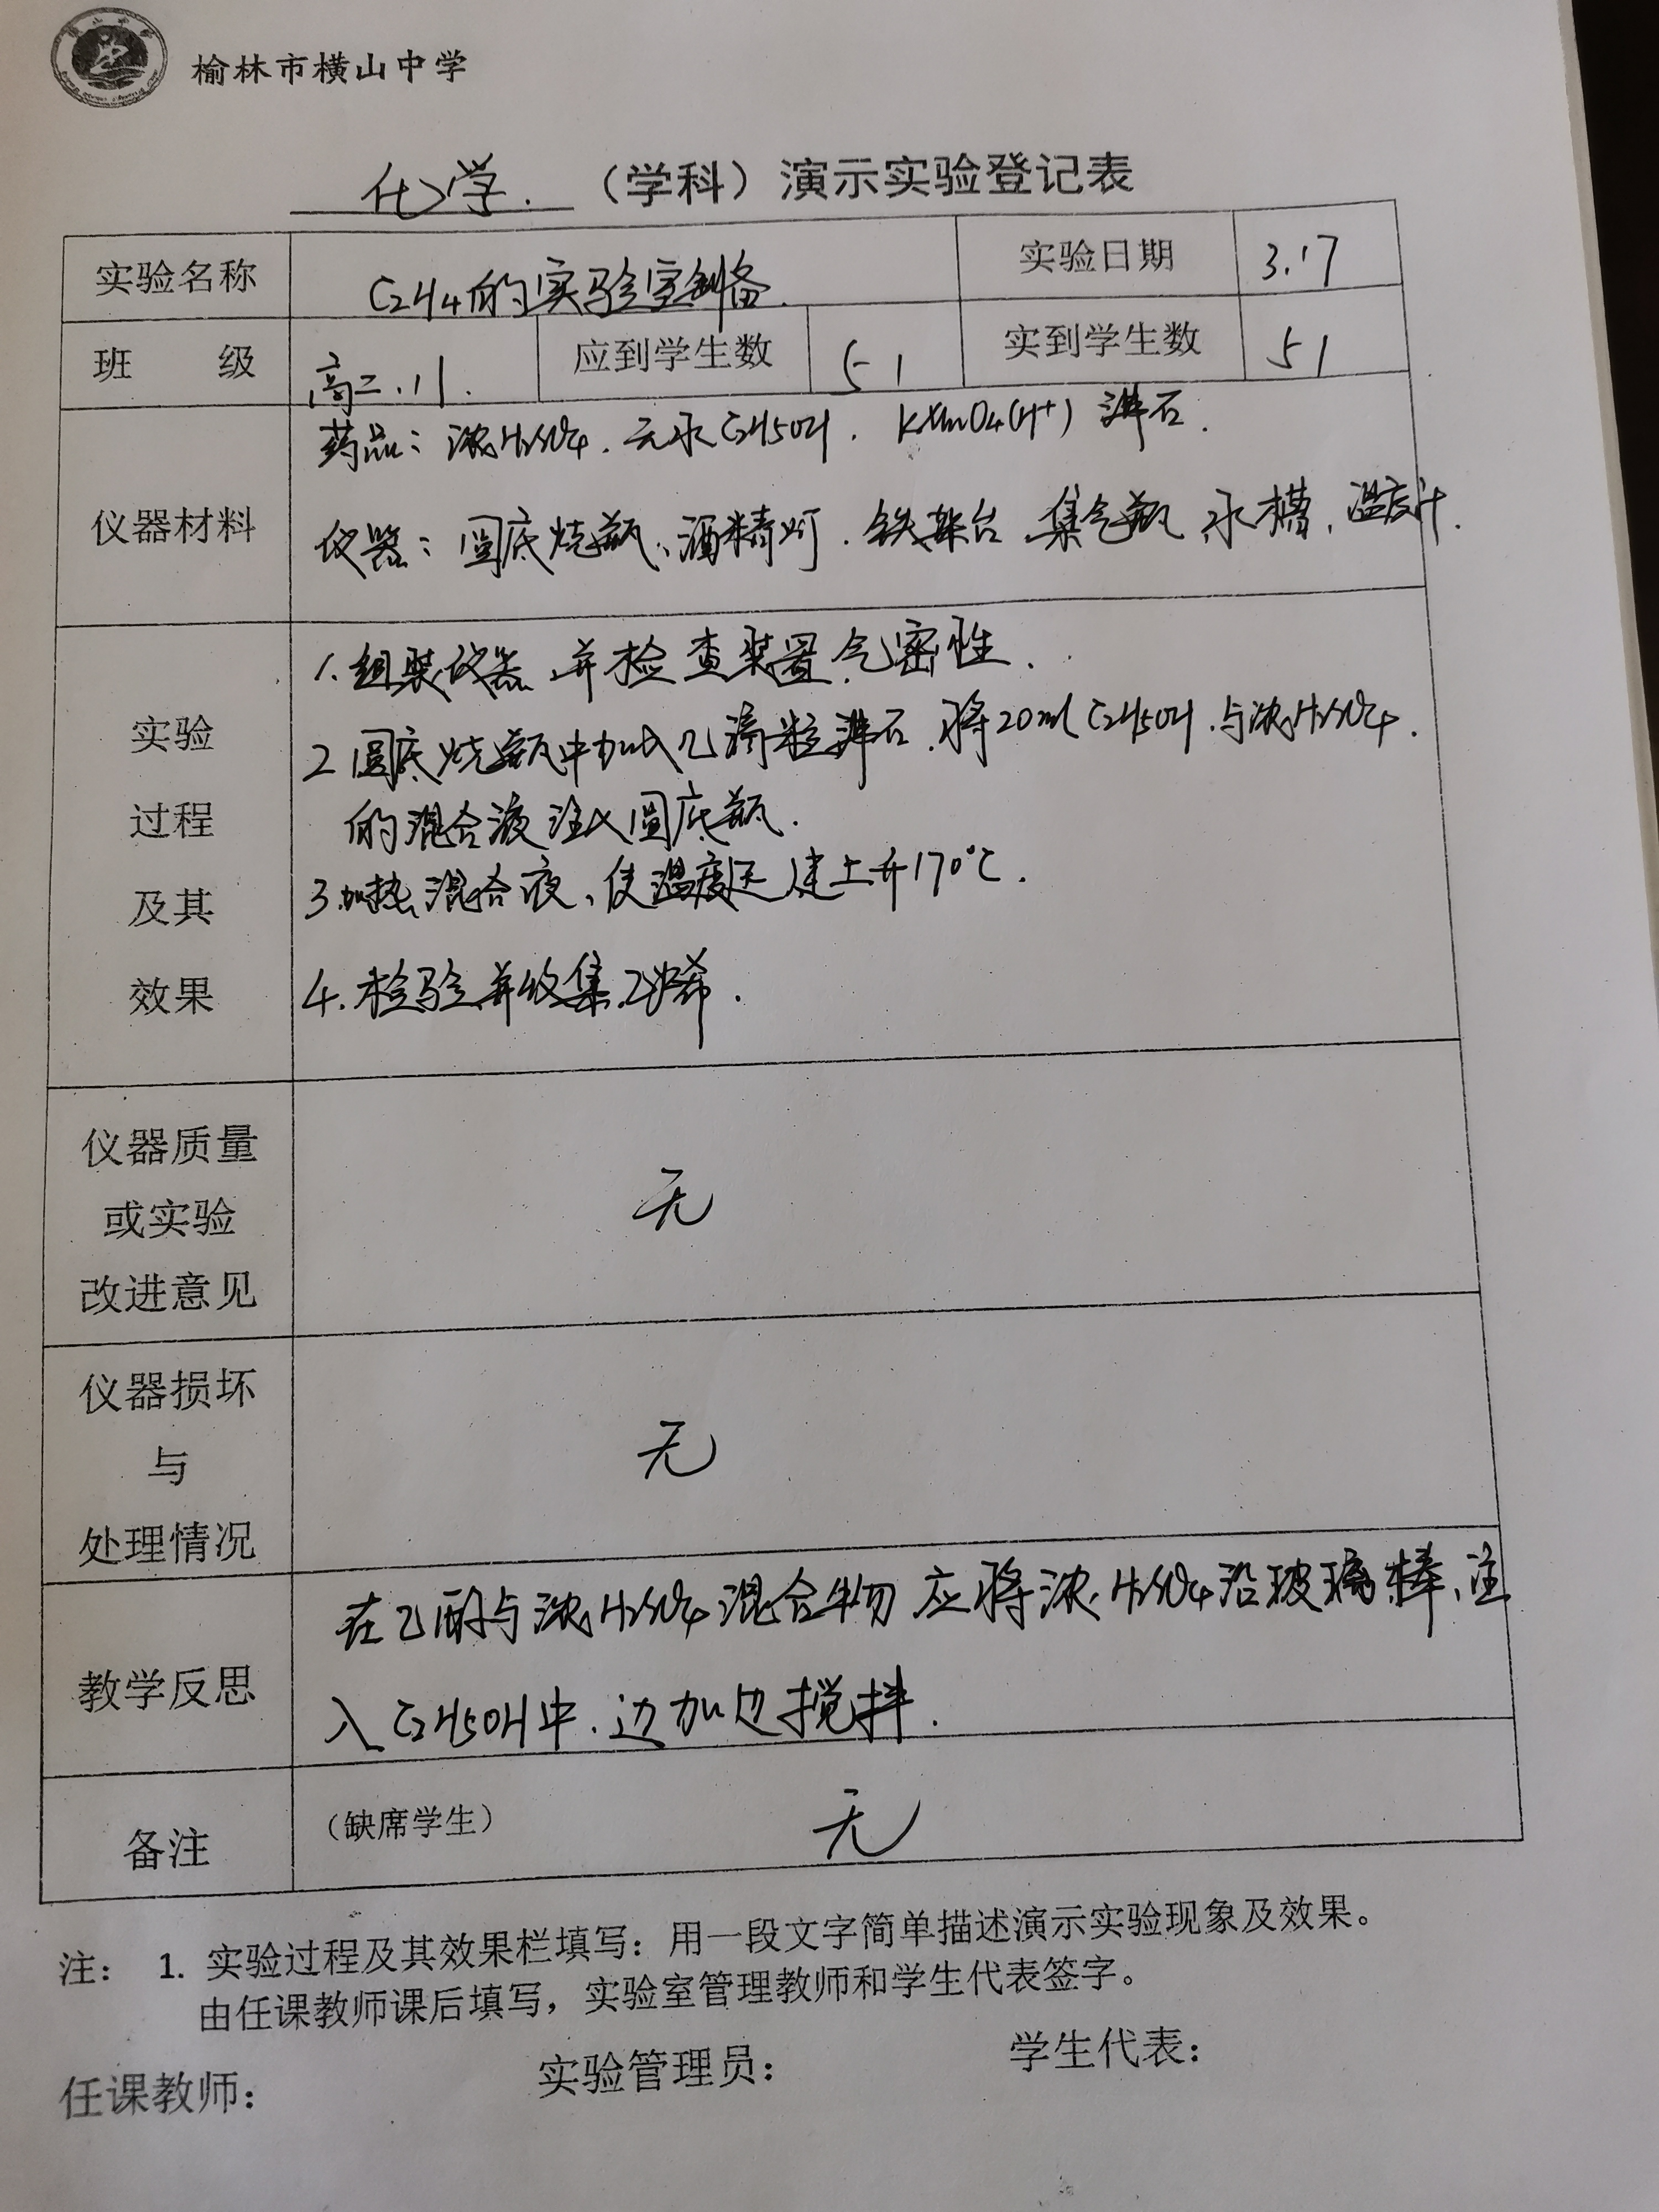 榆林市横山中学
化学.（学科）演示实验登记表
实验名称 C2H4的实验室制备. 实验日期 3.17
班 级 高二.11. 应到学生数 51 实到学生数 51
药品：浓H2SO4. 无水C2H5OH. KMnO4(H+) 沸石.
仪器材料
仪器：圆底烧瓶、酒精灯. 铁架台 集气瓶 水槽. 温度计.
1.组装仪器,并检查装置气密性.
实验
过程
及其
效果
2 圆底烧瓶中加入几粒沸石.将20ml C2H5OH.与浓H2SO4.
的混合液注入圆底瓶.
3.加热混合液、使温度迅速上升170℃.
4.检验并收集乙烯.
仪器质量
或实验
改进意见
无
仪器损坏
与
处理情况
无
在乙醇与浓H2SO4混合物应将浓H2SO4沿玻璃棒注
教学反思
入C2H5OH中.边加边搅拌.
备注 （缺席学生） 无
注： 1. 实验过程及其效果栏填写：用一段文字简单描述演示实验现象及效果。
由任课教师课后填写，实验室管理教师和学生代表签字。
任课教师： 实验管理员： 学生代表：